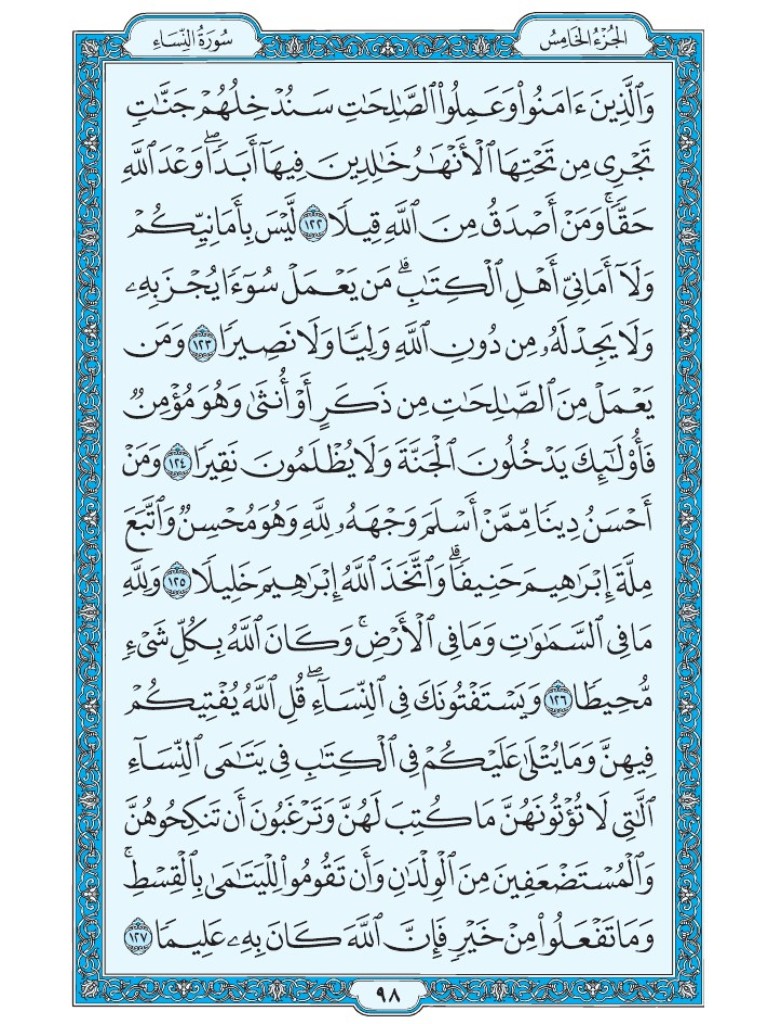 الجُزْءُ الخَامِسُ
سُورَةُ النِّسَاءِ
وَٱلَّذِينَ ءَامَنُوا۟ وَعَمِلُوا۟ ٱلصَّٰلِحَٰتِ سَنُدْخِلُهُمْ جَنَّٰتٍ
تَجْرِى مِن تَحْتِهَا ٱلْأَنْهَٰرُ خَٰلِدِينَ فِيهَآ أَبَدًا ۖ وَعْدَ ٱللَّهِ
حَقًّا ۚ وَمَنْ أَصْدَقُ مِنَ ٱللَّهِ قِيلًا ١٢٢ لَّيْسَ بِأَمَانِيِّكُمْ
وَلَآ أَمَانِىِّ أَهْلِ ٱلْكِتَٰبِ ۗ مَن يَعْمَلْ سُوٓءًا يُجْزَ بِهِۦ
وَلَا يَجِدْ لَهُۥ مِن دُونِ ٱللَّهِ وَلِيًّا وَلَا نَصِيرًا ١٢٣ وَمَن
يَعْمَلْ مِنَ ٱلصَّٰلِحَٰتِ مِن ذَكَرٍ أَوْ أُنثَىٰ وَهُوَ مُؤْمِنٌ
فَأُو۟لَٰٓئِكَ يَدْخُلُونَ ٱلْجَنَّةَ وَلَا يُظْلَمُونَ نَقِيرًا ١٢٤ وَمَنْ
أَحْسَنُ دِينًا مِّمَّنْ أَسْلَمَ وَجْهَهُۥ لِلَّهِ وَهُوَ مُحْسِنٌ وَٱتَّبَعَ
مِلَّةَ إِبْرَٰهِيمَ حَنِيفًا ۗ وَٱتَّخَذَ ٱللَّهُ إِبْرَٰهِيمَ خَلِيلًا ١٢٥ وَلِلَّهِ
مَا فِى ٱلسَّمَٰوَٰتِ وَمَا فِى ٱلْأَرْضِ ۚ وَكَانَ ٱللَّهُ بِكُلِّ شَىْءٍ
مُّحِيطًا ١٢٦ وَيَسْتَفْتُونَكَ فِى ٱلنِّسَآءِ ۖ قُلِ ٱللَّهُ يُفْتِيكُمْ
فِيهِنَّ وَمَا يُتْلَىٰ عَلَيْكُمْ فِى ٱلْكِتَٰبِ فِى يَتَٰمَى ٱلنِّسَآءِ
ٱلَّٰتِى لَا تُؤْتُونَهُنَّ مَا كُتِبَ لَهُنَّ وَتَرْغَبُونَ أَن تَنكِحُوهُنَّ
وَٱلْمُسْتَضْعَفِينَ مِنَ ٱلْوِلْدَٰنِ وَأَن تَقُومُوا۟ لِلْيَتَٰمَىٰ بِٱلْقِسْطِ ۚ
وَمَا تَفْعَلُوا۟ مِنْ خَيْرٍ فَإِنَّ ٱللَّهَ كَانَ بِهِۦ عَلِيمًا ١٢٧
٩٨